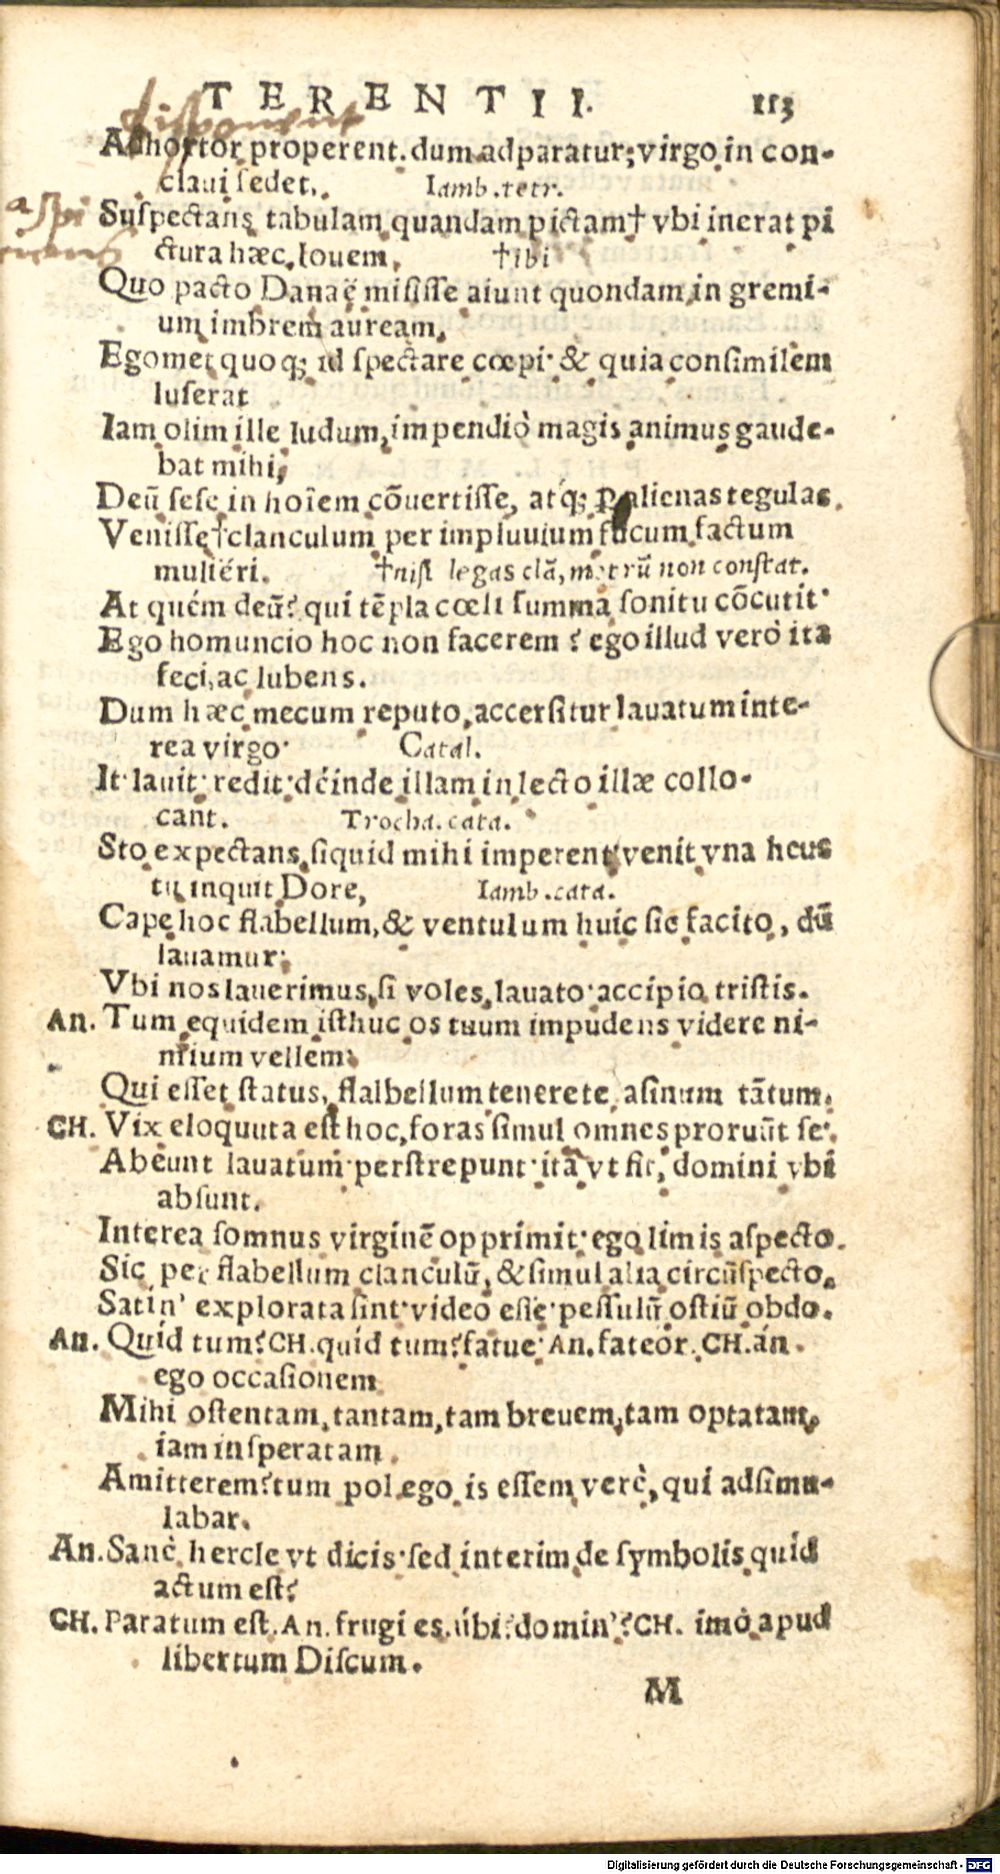 TERENTII. 113
disponent
Adhortor properent. dum adparatur, virgo in con-
claui sedet. Iamb. tetr.
aspi
ciens
Suspectans tabulam quandam pictam† vbi inerat pi
ctura hæc, Iouem, †ibi
Quo pacto Danaę misisse aiunt quondam in gremi-
um imbrem auream.
Egomet quoq; id spectare cœpi· & quia consimilem
luserat
Iam olim ille ludum, impendiò magis animus gaude-
bat mihi,
Deū sese in hoīem cōuertisse, atq́; p alienas tegulas
Venisse† clanculum per impluuium fucum factum
mulieri. †nisi legas clā, metrū non constat.
At quém deū? qui tēpla cœli summa sonitu cōcutit·
Ego homuncio hoc non facerem? ego illud verò ita
feci, ac lubens.
Dum hæc mecum reputo, accersitur lauatum inte-
rea virgo· Catal.
It· lauit· redit· déinde illam in lecto illæ collo-
cant. Trocha. cata.
Sto expectans, siquid mihi imperent, venit vna heus
tu inquit Dore, Iamb. cata.
Cape hoc flabellum, & ventulum huic sic facito, dū
lauamur·
Vbi nos lauerimus, si voles, lauato· accipio tristis.
An. Tum equidem isthuc os tuum impudens videre ni-
mium vellem·
Qui esset status, flalbellum tenere te, asinum tātum.
CH. Vix eloquuta est hoc, foras simul omnes proruūt se·
Abeunt lauatum· perstrepunt· ita vt fit, domini vbi
absunt.
Interea somnus virginē opprimit· ego limis aspecto.
Sic per flabellum clanculū, & simul alia circūspecto.
Satín' explorata sint· video esse· pessulū ostiū obdo.
An. Quíd tum? CH. quíd tum? fatue· An. fateor. CH. án
ego occasionem
Mihi ostentam, tantam, tam breuem, tam optatam,
iam insperatam
Amitterem? tum pol ego is essem verè, qui adsimu-
labar.
An. Sanè hercle vt dicis· sed interim de symbolis quíd
actum est?
CH. Paratum est. An. frugi es. úbi? domin'? CH. imò apud
libertum Discum.
M
Digitalisierung gefördert durch die Deutsche Forschungsgemeinschaft - DFG